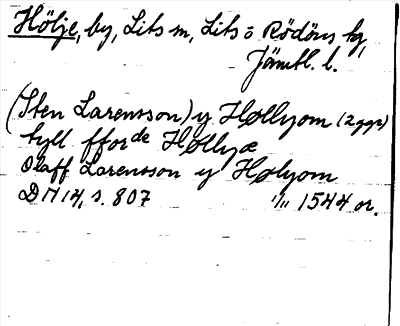 Hölje, by, Lits sn, Lits o Rödöns tg,
Jämtl. l.
(Sten Larensson) y Høllyom (2 ggr)
tyll fforde Høllyæ
Olaff Larensson y Hølyom
DN 14, s. 807 1/11 1544 or.